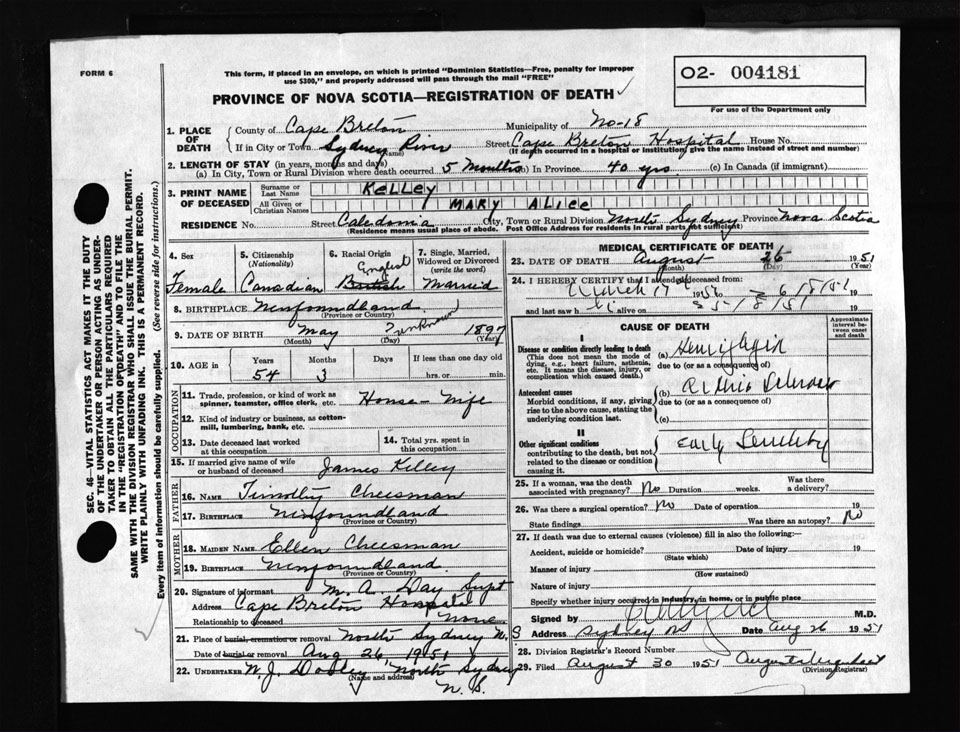 FORM 6
This form, if placed in an envelope, on which is printed "Dominion Statistics—Free, penalty for improper
use $300," and properly addressed will pass through the mail "FREE"
O2- 004181
For use of the Department only
PROVINCE OF NOVA SCOTIA—REGISTRATION OF DEATH
1. PLACE OF DEATH
County of Cape Breton Municipality of No-18
If in City or Town Sydney River (Name) Street Cape Breton Hospital House No.
(If death occurred in a hospital or institution, give the name instead of street and number)
2. LENGTH OF STAY (in years, months and days)
(a) In City, Town or Rural Division where death occurred 5 months (b) In Province 40 yrs. (c) In Canada (if immigrant)
3. PRINT NAME OF DECEASED
Surname or Last Name KELLEY
All Given or Christian Names MARY ALICE
RESIDENCE No. Street Caledonia City, Town or Rural Division North Sydney Province Nova Scotia
(Residence means usual place of abode. Post Office Address for residents in rural parts not sufficient)
4. Sex Female
5. Citizenship (Nationality) Canadian
6. Racial Origin English British
7. Single, Married, Widowed or Divorced (write the word) Married
8. BIRTHPLACE Newfoundland
(Province or Country)
9. DATE OF BIRTH May (Month) unknown (Day) 1897 (Year)
10. AGE in Years 54 Months 3 Days If less than one day old hrs. or min.
OCCUPATION
11. Trade, profession, or kind of work as spinner, teamster, office clerk, etc. House-Wife
12. Kind of industry or business, as cotton-mill, lumbering, bank, etc.
13. Date deceased last worked at this occupation
14. Total yrs. spent in this occupation
15. If married give name of wife or husband of deceased James Kelley
FATHER
16. NAME Timothy Cheesman
17. BIRTHPLACE Newfoundland
(Province or Country)
MOTHER
18. MAIDEN NAME Ellen Cheesman
19. BIRTHPLACE Newfoundland
(Province or Country)
20. Signature of informant M. A. Day Supt
Address Cape Breton Hospital
Relationship to deceased None
21. Place of burial, cremation or removal North Sydney N.S
Date of burial or removal Aug 26 1951
22. UNDERTAKER W. J. Dooley North Sydney
(Name and address)
N. S.
MEDICAL CERTIFICATE OF DEATH
23. DATE OF DEATH August (Month) 26 (Day) 1951 (Year)
24. I HEREBY CERTIFY that I attended deceased
March 17 19
and last saw h alive on 19
CAUSE OF DEATH
Approximate interval between onset and death
I
Disease or condition directly leading to death
(This does not mean the mode of dying, e.g., heart failure, asthenia, etc. It means the disease, injury, or complication which caused death.)
(a) Hemiplegia
due to (or as a consequence of)
Antecedent causes
Morbid conditions, if any, giving rise to the above cause, stating the underlying condition last.
(b)
due to (or as a consequence of)
(c)
II
Other significant conditions
contributing to the death, but not related to the disease or condition causing it.
Early Senility
25. If a woman, was the death associated with pregnancy? No Duration weeks. Was there a delivery?
26. Was there a surgical operation? No Date of operation 19
State findings Was there an autopsy? No
27. If death was due to external causes (violence) fill in also the following:—
Accident, suicide or homicide? Date of injury 19
(State which)
Manner of injury
(How sustained)
Nature of injury
Specify whether injury occurred in industry, in home, or in public place
Signed by M.D.
Address Sydney NS Date Aug 26 1951
28. Division Registrar's Record Number
29. Filed August 30 1951
(Division Registrar)
SEC. 46—VITAL STATISTICS ACT MAKES IT THE DUTY
OF THE UNDERTAKER OR PERSON ACTING AS UNDER-
TAKER TO OBTAIN ALL THE PARTICULARS REQUIRED
IN THE "REGISTRATION OF DEATH" AND TO FILE THE
SAME WITH THE DIVISION REGISTRAR WHO SHALL ISSUE THE BURIAL PERMIT.
WRITE PLAINLY WITH UNFADING INK. THIS IS A PERMANENT RECORD.
Every item of information should be carefully supplied. (See reverse side for instructions.)